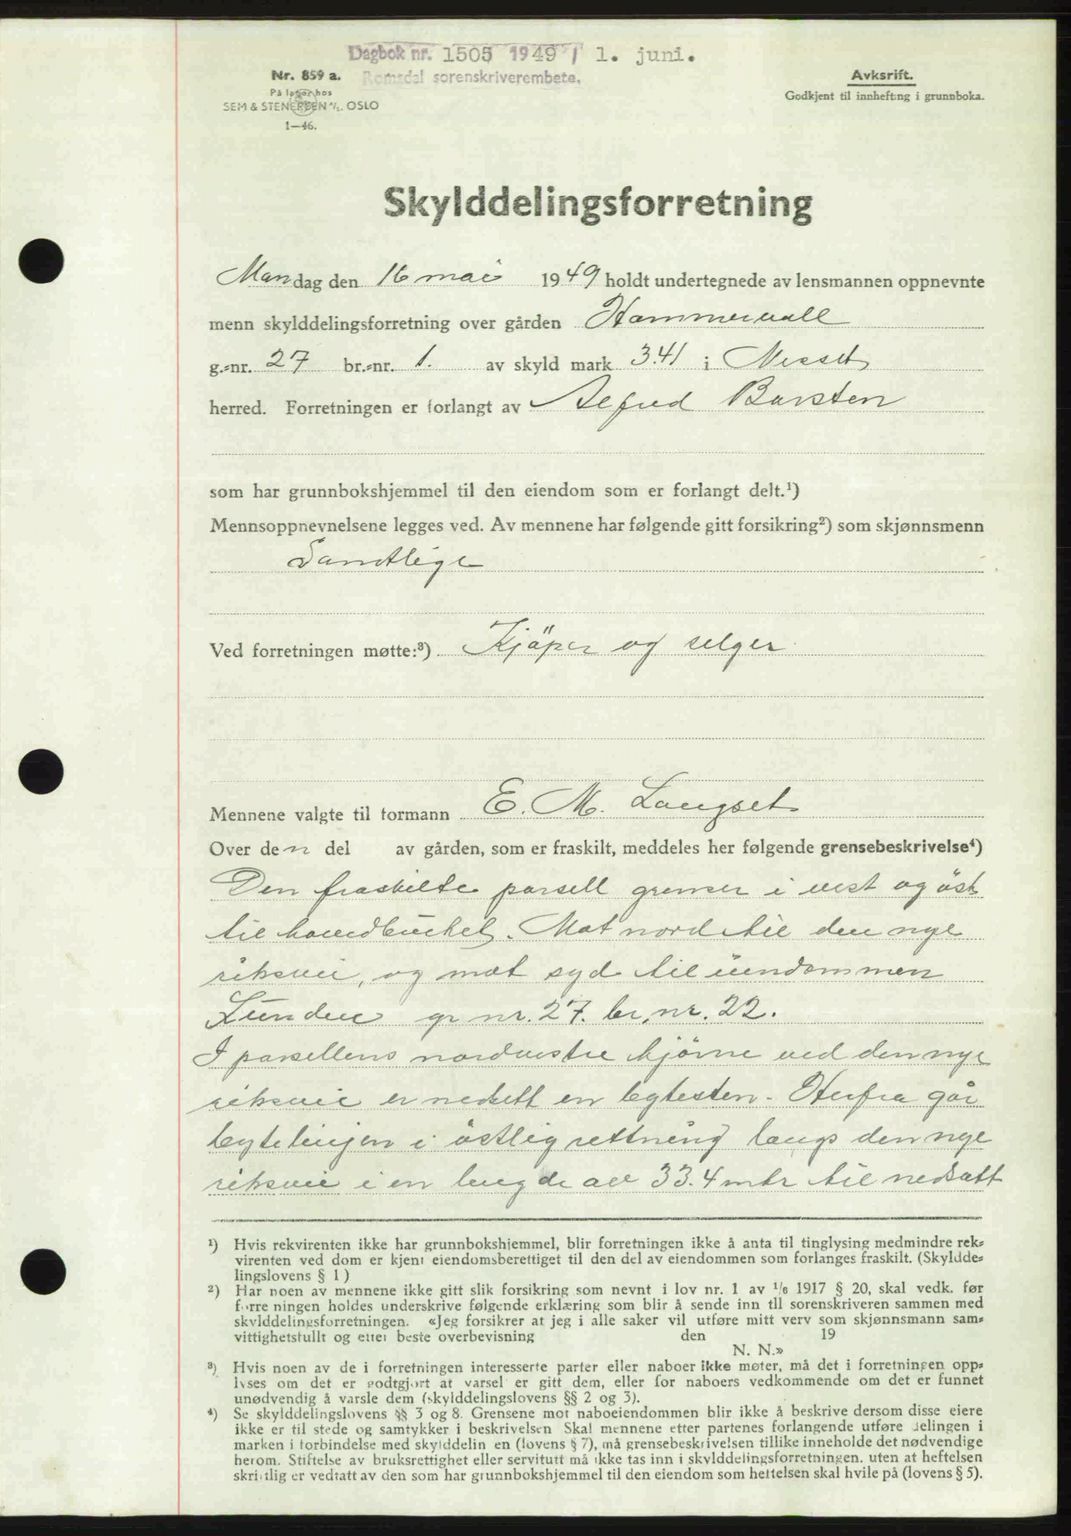 Dagbok nr. 1505 1949 / 1. juni.
Romsdal sorenskriverembete.
Nr. 859 a.
På lager hos
SEM & STENERSEN A/S. OSLO
1—46.
Avksrift.
Godkjent til innhefting i grunnboka.
Skylddelingsforretning
Mandag den 16 mai 1949 holdt undertegnede av lensmannen oppnevnte
menn skylddelingsforretning over gården Hammervall
g.-nr. 27 br.-nr. 1. av skyld mark 3.41 i Nesset
herred. Forretningen er forlangt av Alfred Barsten
som har grunnbokshjemmel til den eiendom som er forlangt delt.¹)
Mennsoppnevnelsene legges ved. Av mennene har følgende gitt forsikring²) som skjønnsmenn
Samtlige
Ved forretningen møtte:³) Kjöper og selger
Mennene valgte til formann E. M. Langset
Over den del av gården, som er fraskilt, meddeles her følgende grensebeskrivelse⁴)
Den fraskilte parsell grenser i vest og öst
til hovedbruket. Mot nord til den nye
riksvei, og mot syd til eiendommen
Lunden gr nr. 27. br. nr. 22.
I parsellens nordvestre hjörne ved den nye
riksvei er nedsett en bytesten. Herfra går
bytelinjen i östlig rettning langs den nye
riksvei i en lengde av 33.4 mtr til nedsatt
¹) Hvis rekvirenten ikke har grunnbokshjemmel, blir forretningen ikke å anta til tinglysing medmindre rek-
virenten ved dom er kjent eiendomsberettiget til den del av eiendommen som forlanges fraskilt. (Skyldde-
lingslovens § 1)
²) Har noen av mennene ikke gitt slik forsikring som nevnt i lov nr. 1 av 1/6 1917 § 20, skal vedk. før
forretningen holdes underskrive følgende erklæring som blir å sende inn til sorenskriveren sammen med
skylddelingsforretningen. «Jeg forsikrer at jeg i alle saker vil utføre mitt verv som skjønnsmann sam-
vittighetsfullt og etter beste overbevisning den 19
N. N.»
³) Hvis noen av de i forretningen interesserte parter eller naboer ikke møter, må det i forretningen opp-
lyses om det er godtgjort at varsel er gitt dem, eller for naboers vedkommende om det er funnet
unødvendig å varsle dem (skylddelingslovens §§ 2 og 3).
⁴) Se skylddelingslovens §§ 3 og 8. Grensene mot naboeiendommen blir ikke å beskrive dersom disse eiere
ikke er til stede og samtykker i beskrivelsen Skal mennene etter partenes forlangende utføre delingen i
marken i forbindelse med skylddelin en (lovens § 7), må grensebeskrivelsen tillike inneholde det nødvendige
herom. Stiftelse av bruksrettighet eller servitutt må ikke tas inn i skylddelingsforretningen. uten at heftelsen
skriftlig er vedtatt av den som har grunnbokshjemmel til den eiendom som heftelsen skal hvile på (lovens § 5).